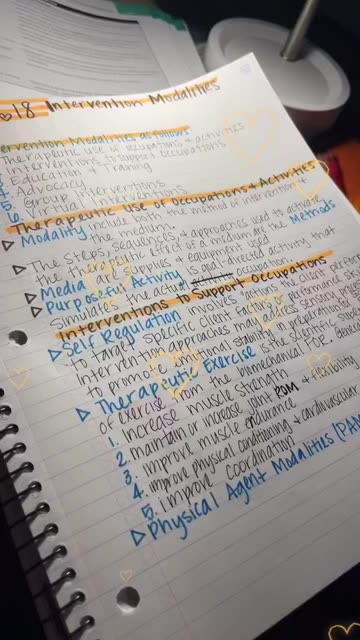 18 Intervention Modalities
ervention Modalities as follows
Therapeutic use of occupations & activities
Interventions to support occupations
Education & Training
4. Advocacy
5. Group Interventions
6. Virtual Interventions
Therapeutic Use of Occupations & Activities
▷ Modality include both the method of intervention
the medium.
▷ The steps, sequences, & approaches used to activate
the therapeutic effect of a medium are the Methods
▷ Media are supplies & equipment used
▷ Purposeful Activity is goal-directed activity that
Simulates the actual occupation.
Interventions to Support Occupations
▷ Self Regulation involves
to target specific client factors or performance
Intervention approaches may address sensory
to promote emotional stability in preparation for
▷ Therapeutic Exercise is the scientific
of exercise from the biomechanical FOR.
1. increase muscle strength
2. maintain or increase joint ROM & flexibility
3. improve muscle endurance
4. improve physical conditioning & cardiovascular
5. improve coordination
▷ Physical Agent Modalities (PAM